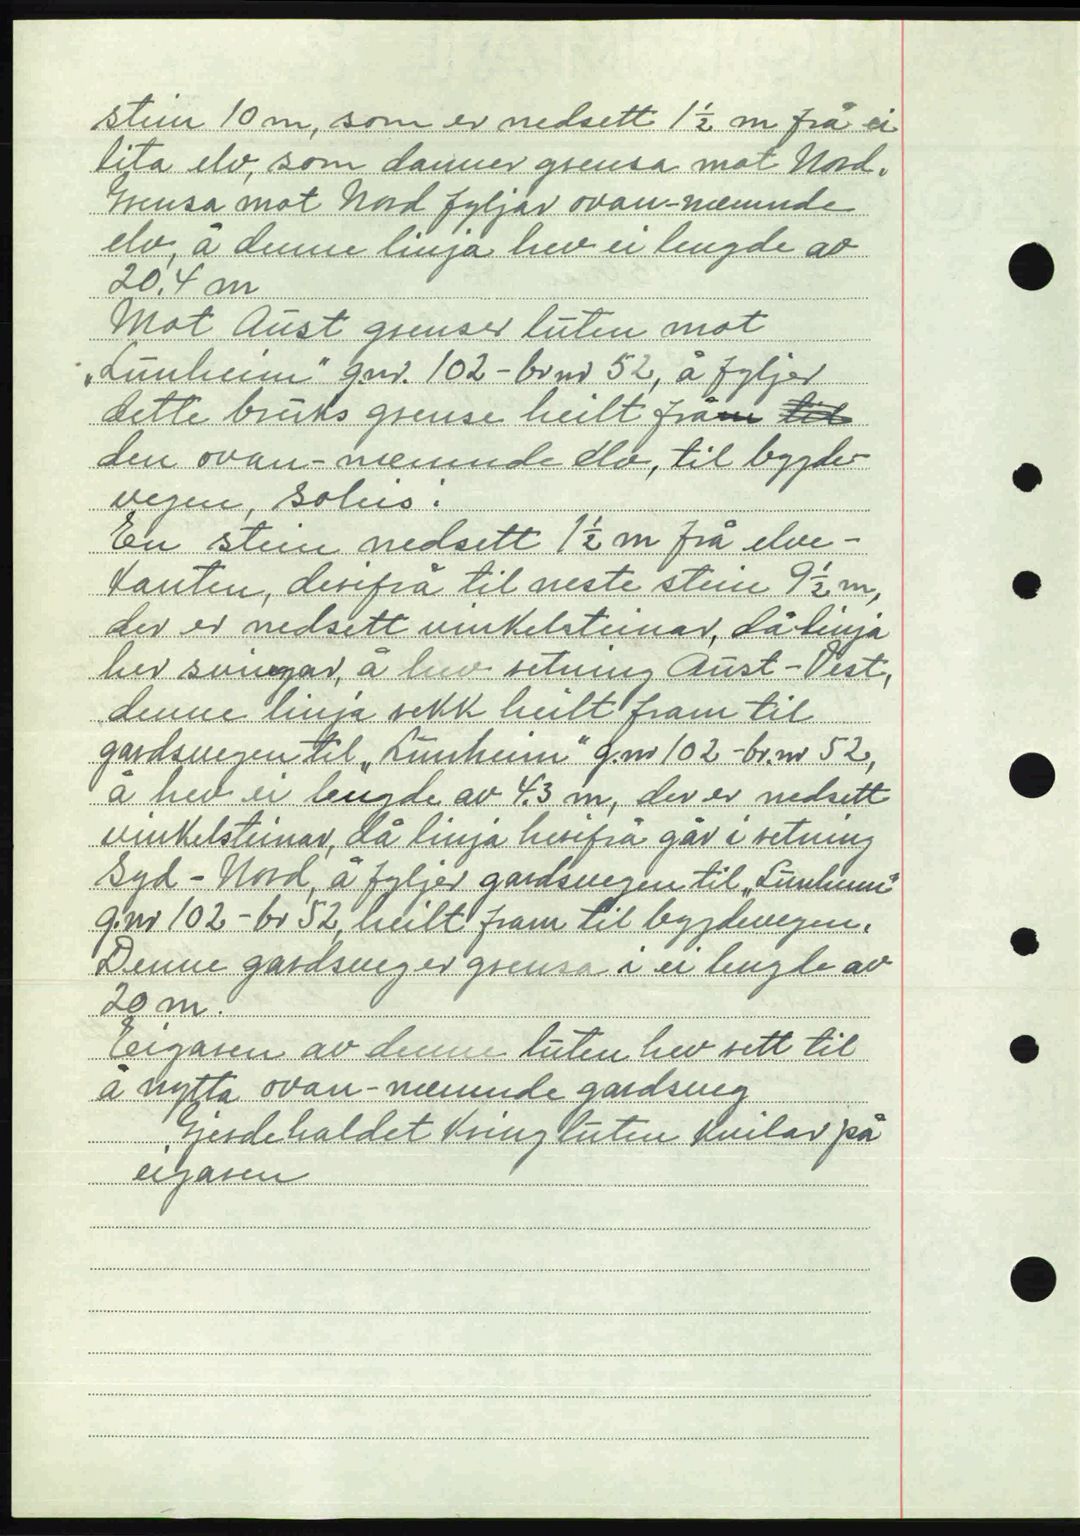 stein 10 m, som er nedsett 1½ m frå ei
lita elv, som danner grensa mot Nord.
Grensa mot Nord fyljar ovan-næmnde
elv, å denne linja hev ei lengde av
20.4 m
Mot Aust grenser luten mot
„Lunheim" g.nr. 102 - br nr 52, å fyljer
dette bruks grense heilt frå
den ovan-næmnde elv, til bygde-
vegen, soleis:
En stein nedsett 1½ m frå elve-
kanten, derifrå til neste stein 9½ m,
der er nedsett vinkelsteinar, då linja
her svingar, å hev retning Aust - Vest,
denne linja rekk heilt fram til
gardsvegen til „Lunheim" g.nr 102 - br.nr 52,
å hev ei lengde av 4.3 m, der er nedsett
vinkelsteinar, då linja herifrå går i retning
Syd - Nord, å fyljer gardsvegen til „Lunheim"
g.nr 102 - br 52, heilt fram til bygdevegen.
Denne gardsveg er grensa i ei lengde av
20 m.
Eigaren av denne luten hev rett til
å nytta ovan-næmnde gardsveg
Gjerdehaldet kring luten kvilar på
eigaren